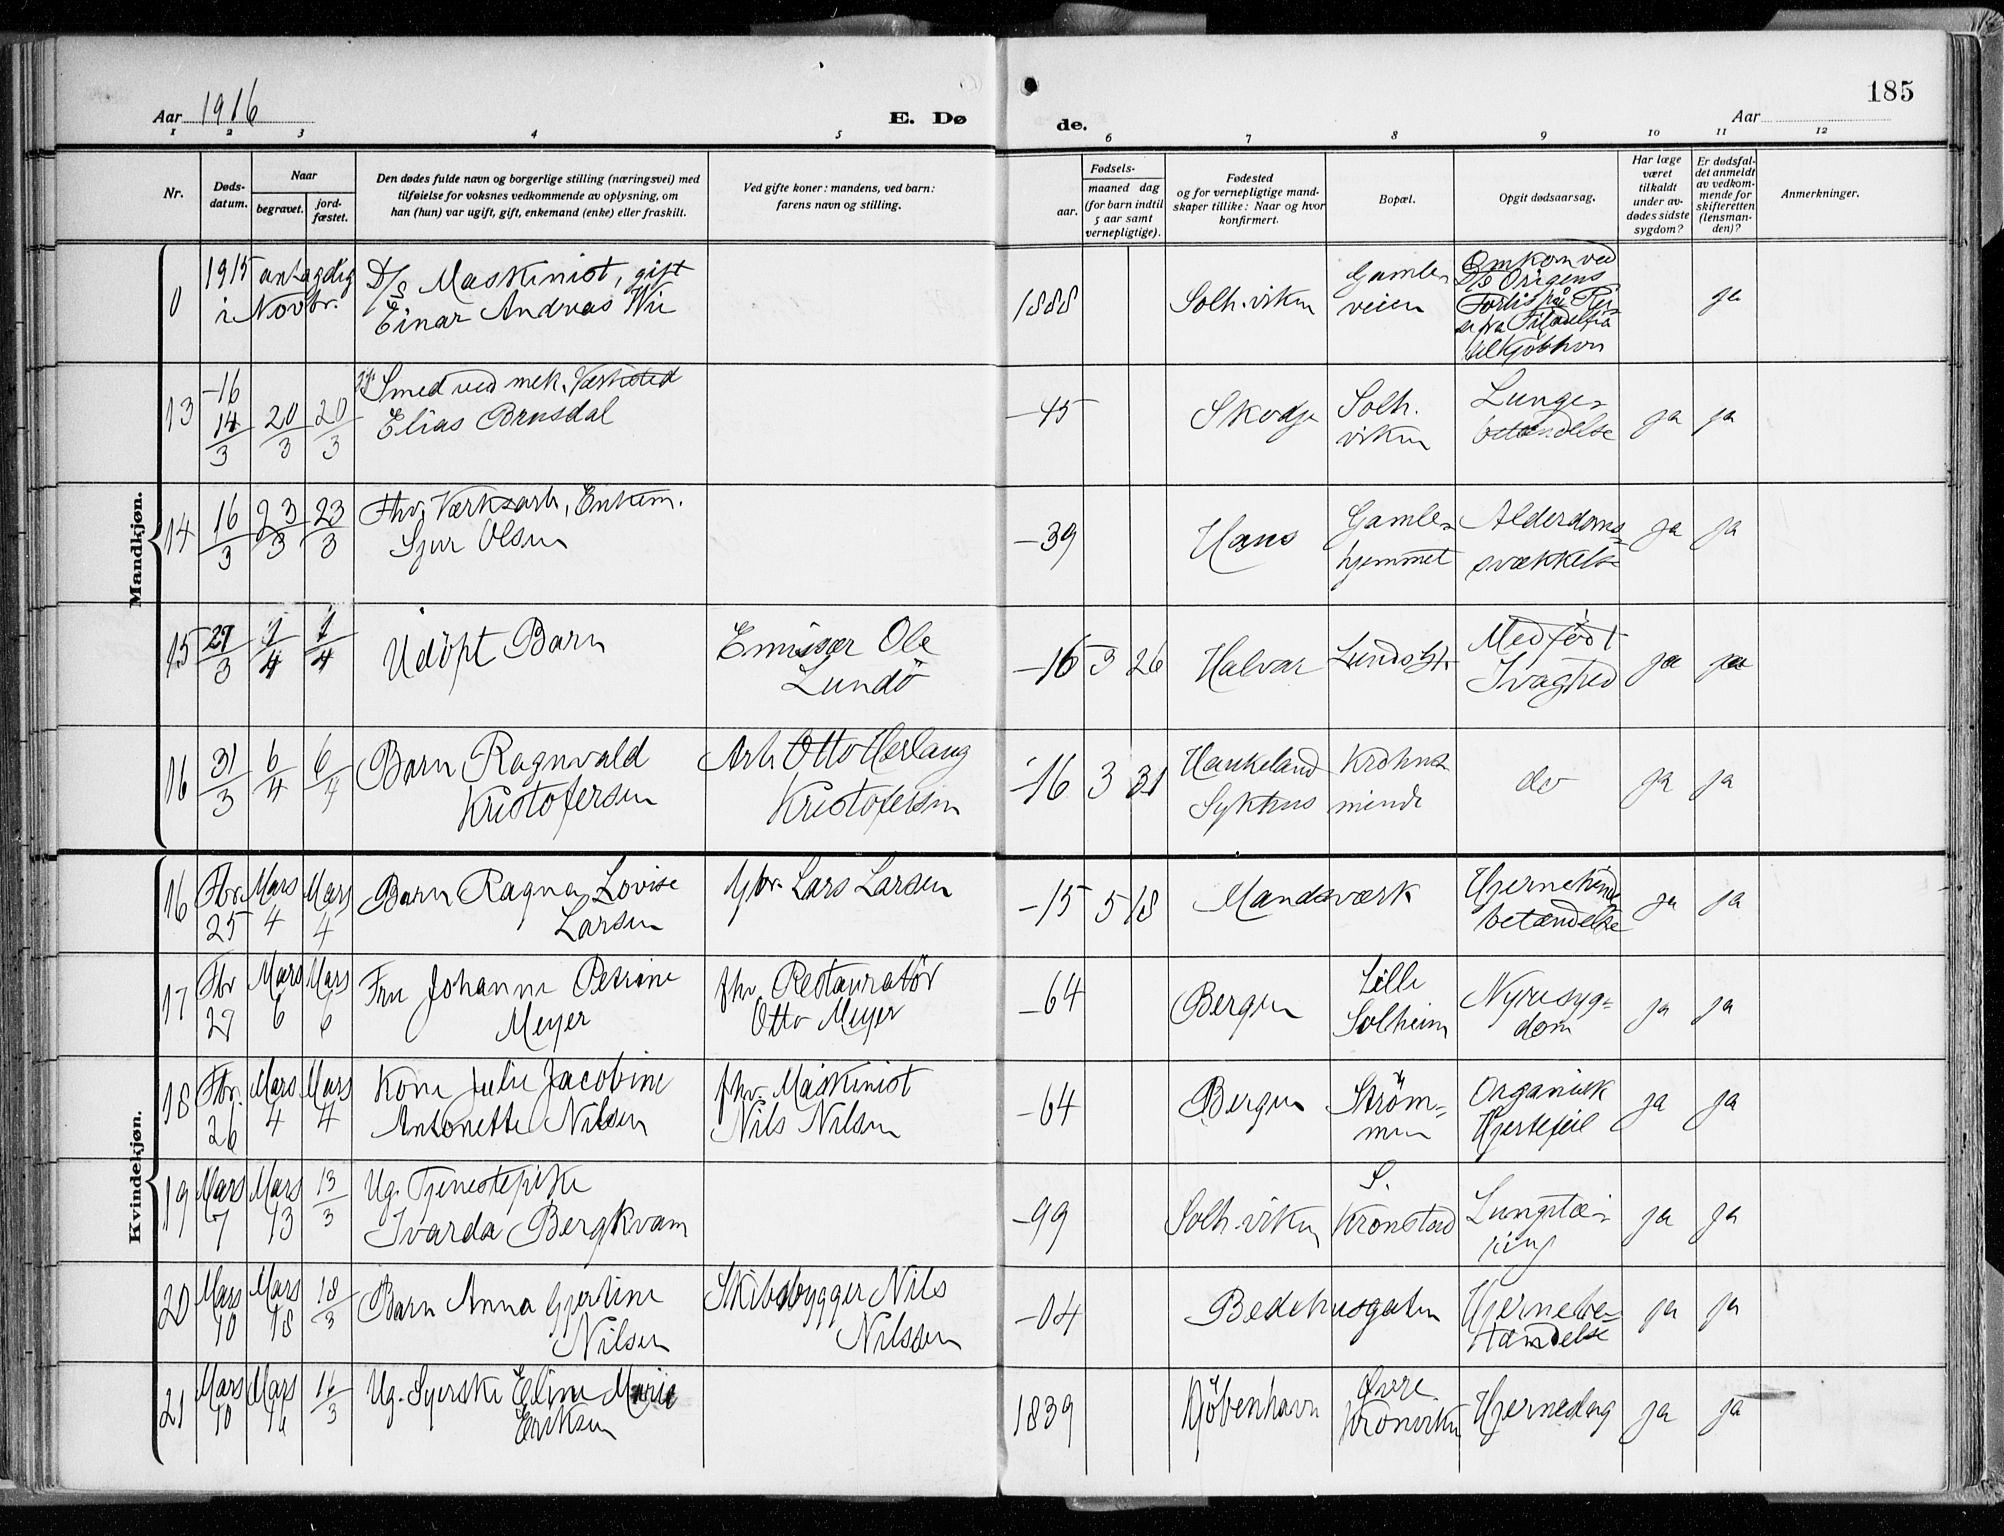 Aar 1916
E. Dø
de.
Aar
185
1 2 3 4 5 6 7 8 9 10 11 12
Nr.
Døds-
datum.
Naar
begravet.
jord-
fæstet.
Den dødes fulde navn og borgerlige stilling (næringsvei) med
tilføielse for voksnes vedkommende av oplysning, om
han (hun) var ugift, gift, enkemand (enke) eller fraskilt.
Ved gifte koner: mandens, ved barn:
farens navn og stilling.
Fødsels-
aar.
maaned dag
(for barn indtil
5 aar samt
vernepligtige).
Fødested
og for vernepligtige mand-
skaper tillike: Naar og hvor
konfirmert.
Bopæl.
Opgit dødsaarsag.
Har læge
været
tilkaldt
under av-
dødes sidste
sygdom?
Er dødsfal-
det anmeldt
av vedkom-
mende for
skifteretten
(lensman-
den)?
Anmerkninger.
Mandkjøn.
0 1915 antagelig
i Novbr.
D/S Maskinist, gift
Einar Andreas Wie
1888
Solh.viken
Gamle
veien
Omkom ved
D/S Origens
Forlis på Rei-
se fra Filadelfia
til Kjøbhvn
ja
13 -16
14/3 20/3 20/3
Smed ved mek. Værksted
Elias Brusdal
-45
Skodje
Solh.
viken
Lunge-
betændelse
ja ja
14 16/3 23/3 23/3
Fhv. Værksarb., Enkem.
Sjur Olsen
-39
Haus
Gamle-
hjemmet
Alderdoms-
svækkelse
ja ja
15 27/3 1/4 1/4
Udöpt Barn
Emisær Ole
Lundö
-16 3 26
Halvar Lundsgt.
Medfødt
Svaghed
ja ja
16 31/3 6/4 6/4
Barn Ragnvald
Kristofersen
Arb. Otto Herlaug
Kristofersen
-16 3 31
Haukeland
Sykehus
Krohns
minde
do
ja ja
Kvindekjøn.
16 Fbr. 25 Mars 4 Mars 4
Barn Ragna Lovise
Larsen
Gbr. Lars Larsen
-15 5 18
Mandsværk
Hjernehinde
betændelse
ja ja
17 Fbr 27 Mars 6 Mars 6
Fru Johanne Petrine
Meyer
fhv. Restauratör
Otto Meyer
-64
Bergen
Lille
Solheim
Nyresyg-
dom
ja ja
18 Fbr. 26 Mars 4 Mars 4
Kone Julie Jacobine
Antonette Nilsen
fhv. Maskinist
Nils Nilsen
-64
Bergen
Strøm-
men
Organisk
Hjertefeil
ja ja
19 Mars 7 Mars 13 13/3
Ug. Tjenestepike
Ivarda Bergkvam
-99
Solh.viken
S.
Kronstad
Lungetæ-
ring
ja ja
20 Mars 10 Mars 18 18/3
Barn Anna Gjertine
Nilsen
Skibsbygger Nils
Nilssen
-04
Bedehusgaten
Hjernebe-
tændelse
ja ja
21 Mars 10 Mars 16 16/3
Ug. Syerske Eline Marie
Eriksen
1839
Kjöbenhavn
Øvre
Kronviken
Hjerneslag
ja ja